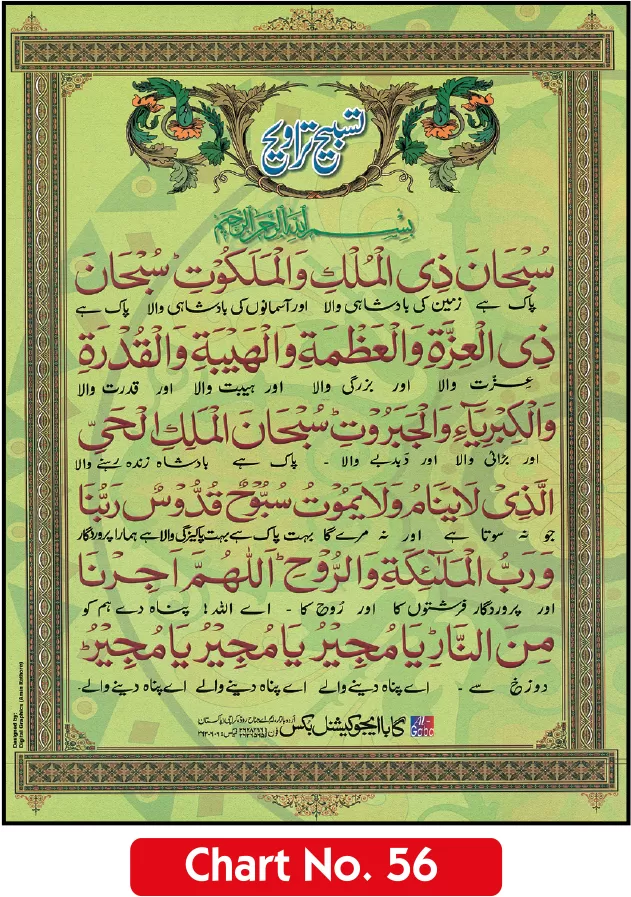 تسبیح تراویح
بسم الله الرحمن الرحيم
سُبْحَانَ ذِی الْمُلْكِ وَالْمَلَكُوْتِ ؕ سُبْحَانَ
پاک ہے زمین کی بادشاہی والا اور آسمانوں کی بادشاہی والا پاک ہے
ذِی الْعِزَّةِ وَالْعَظْمَةِ وَالْهَيْبَةِ وَالْقُدْرَةِ
عزّت والا اور بزرگی والا اور ہیبت والا اور قدرت والا
وَالْكِبْرِيَآءِ وَالْجَبَرُوْتِ ؕ سُبْحَانَ الْمَلِكِ الْحَيِّ
اور بڑائی والا اور دبدبے والا - پاک ہے بادشاہ زندہ رہنے والا
الَّذِیْ لَايَنَامُ وَلَايَمُوْتُ سُبُّوْحٌ قُدُّوْسٌ رَبُّنَا
جو نہ سوتا ہے اور نہ مرے گا بہت پاک ہے بہت پاکیزگی والا ہے ہمارا پروردگار
وَرَبُّ الْمَلٰٓئِكَةِ وَالرُّوْحِ ؕ اَللّٰهُمَّ اَجِرْنَا
اور پروردگار فرشتوں کا اور رُوح کا - اے اللہ! پناہ دے ہم کو
مِنَ النَّارِ ؕ يَا مُجِيْرُ يَا مُجِيْرُ يَا مُجِيْرُ ؕ
دوزخ سے - اے پناہ دینے والے اے پناہ دینے والے اے پناہ دینے والے-
گابا ایجوکیشنل بکس
Al-Gaba
Designed by:
Digital Graphics (Amin Rathore)
Chart No. 56